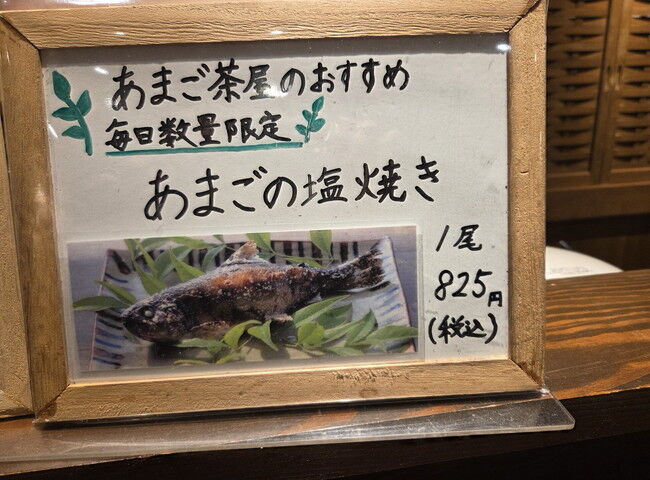 あまご茶屋のおすすめ
毎日数量限定
あまごの塩焼き
1尾
825円
(税込)